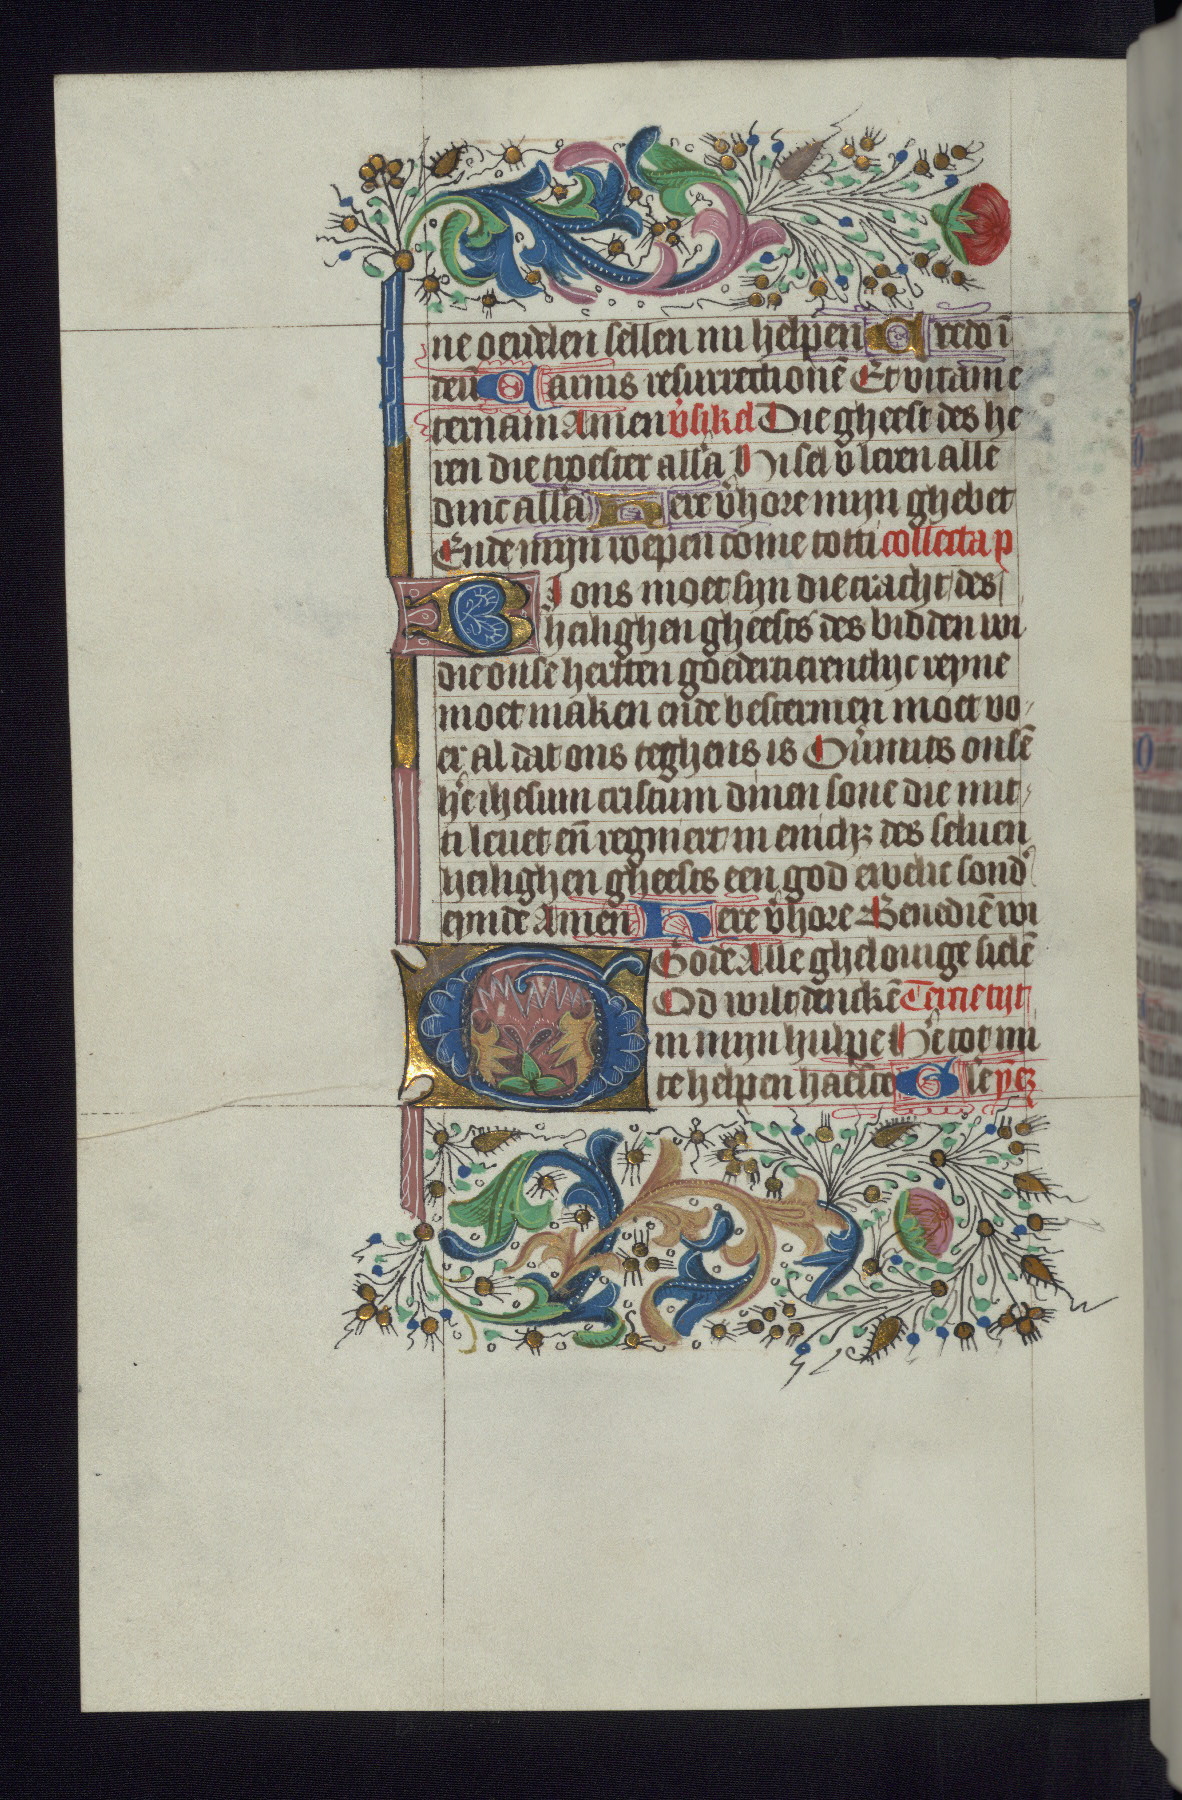 ne oeuelen sellen mi helpen Credo ī
deū Carnis resurrectionē Et vitam e
ternam Amen v̄sikel Die gheest des he
ren die troester all'a Hi sel v leren alle
dinc all'a Here v̄hore mijn ghebet
Ende mijn roepen come totti collecta p
BI ons moet sijn die cracht des
heilighen gheests des bidden wi
die onse herten goedertierentlijc reyne
moet maken ende bescermen moet vo
er al dat ons teghens is Ouermits onsē
hēe ihesum cristum dinen sone die mit
ti leuet eñ regniert in enichz des seluen
heilighen gheests een god ewelic sond'
eynde Amen Here v̄hore Benediē wi
Gode Alle ghelouige sielē
GOd wilt dencken Tercie tijt
in mijn hulpe Hēe tot mi
te helpen haeste Glorie